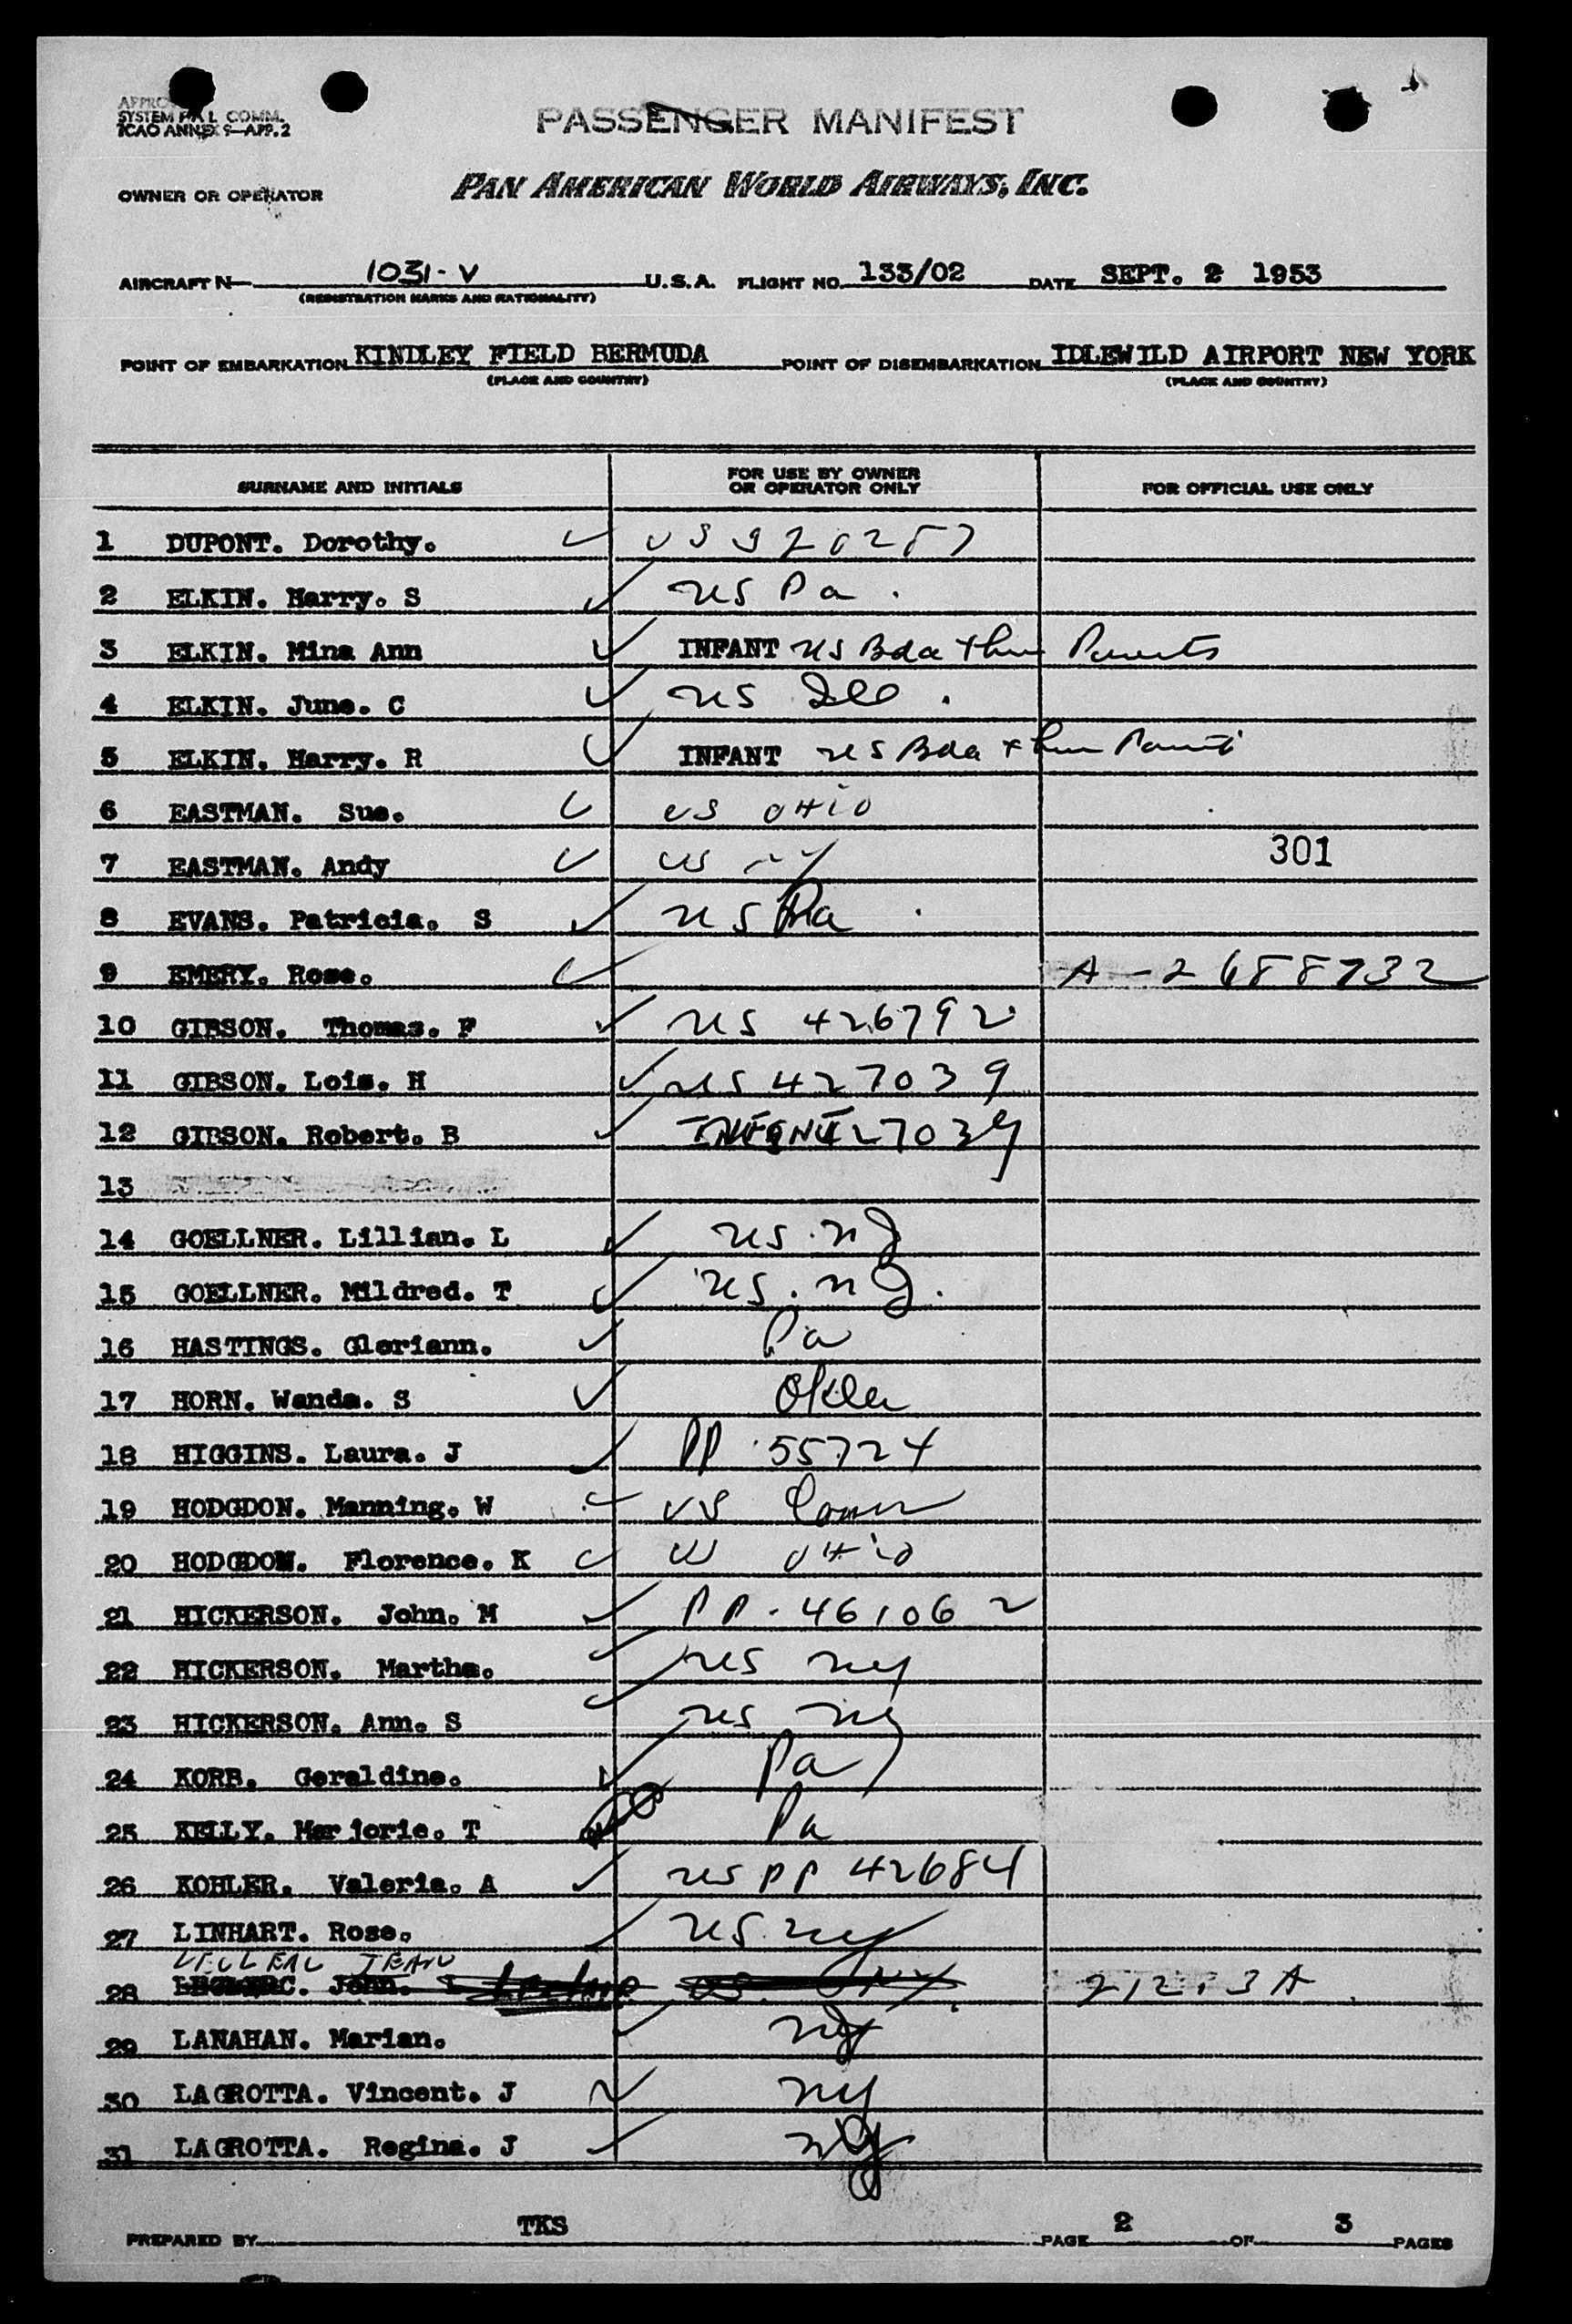 SYSTEM COMM.
ICAO ANNEX 9—APP.2
PASSENGER MANIFEST
OWNER OR OPERATOR PAN AMERICAN WORLD AIRWAYS, INC.
AIRCRAFT N- 1031-V U.S.A. FLIGHT NO. 133/02 DATE SEPT. 2 1953
(REGISTRATION MARKS AND NATIONALITY)
POINT OF EMBARKATION KINDLEY FIELD BERMUDA POINT OF DISEMBARKATION IDLEWILD AIRPORT NEW YORK
(PLACE AND COUNTRY) (PLACE AND COUNTRY)
SURNAME AND INITIALS FOR USE BY OWNER OR OPERATOR ONLY FOR OFFICIAL USE ONLY
1 DUPONT. Dorothy. US
2 ELKIN. Harry. S US Pa.
3 ELKIN. Mina Ann INFANT US Bda thru Parents
4 ELKIN. June. C US Ill.
5 ELKIN. Harry. R INFANT US Bda thru Parents
6 EASTMAN. Sue. US OHIO
7 EASTMAN. Andy US NY 301
8 EVANS. Patricia. S US Pa
9 EMERY. Rose. A-2688732
10 GIBSON. Thomas. F US 426792
11 GIBSON. Lois. H US 427039
12 GIBSON. Robert. B INFANT 27039
13
14 GOELLNER. Lillian. L US. NJ
15 GOELLNER. Mildred. T US. NJ.
16 HASTINGS. Gloriann. Pa
17 HORN. Wanda. S Okla
18 HIGGINS. Laura. J PP 55724
19 HODGDON. Manning. W US Conn
20 HODGDON. Florence. K US OHIO
21 HICKERSON. John. M PP-461062
22 HICKERSON. Martha. US NY
23 HICKERSON. Ann. S US NY
24 KORB. Geraldine. Pa
25 KELLY. Marjorie. T Pa
26 KOHLER. Valeria. A US PP 42684
27 LINHART. Rose. US. NY
JEAN
28 John. US. NY
29 LANAHAN. Marian.
30 LAGROTTA. Vincent. J NY
31 LAGROTTA. Regina. J
PREPARED BY TKS PAGE 2 OF 3 PAGES